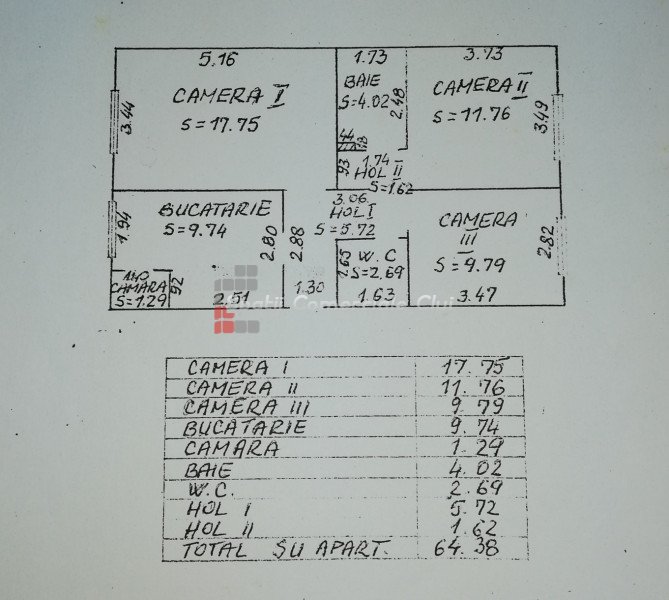 5.16
1.73
3.73
CAMERA I
S=17.75
BAIE
S=4.02
2.48
CAMERA II
S=11.76
3.44
3.49
44
93
1.74
HOL II
S=1.62
BUCATARIE
S=9.74
1.94
2.80
2.88
3.06
HOL I
S=5.72
CAMERA
III
S=9.79
2.82
1.40
CAMARA
S=1.29
92
2.51
1.30
1.65
W.C
S=2.69
1.63
3.47
CAMERA I 17.75
CAMERA II 11.76
CAMERA III 9.79
BUCATARIE 9.74
CAMARA 1.29
BAIE 4.02
W.C. 2.69
HOL I 5.72
HOL II 1.62
TOTAL SU APART. 64.38